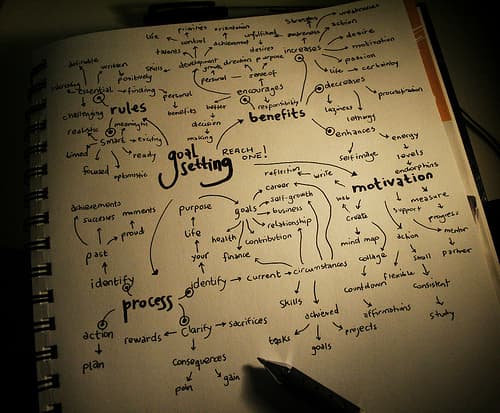 weaknesses
strengths
priorities
orientation
action
life
control
unfulfilled
awareness
talents
achievement
desire
definable
written
skills
development
desires
increases
motivation
growth
direction
purpose
positively
personal
sense of
passion
essential
finding
personal
encourages
life
certainty
decreases
rules
benefits
better
responsibility
procrastination
challenging
meaningful
decision
benefits
laziness
realistic
smart
exciting
making
lethargy
enhances
timed
ready
goal
setting
REACH
ONE!
energy
focused
optimistic
self image
levels
reflection
endorphins
career
write
motivation
achievements
purpose
self-growth
measure
successes
moments
goals
business
support
progress
proud
relationship
create
life
health
contribution
action
mentor
past
mind map
your
finance
collage
small
partner
identify
identify
current
circumstances
flexible
process
countdown
consistent
skills
action
clarify
sacrifices
achieved
affirmations
study
rewards
tasks
projects
plan
consequences
goals
pain
gain